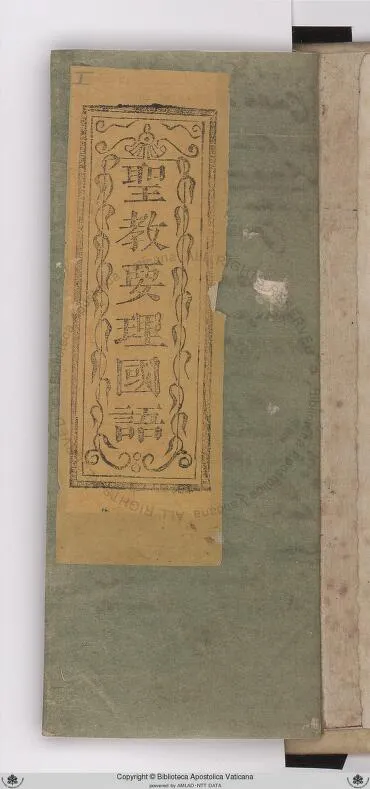 聖教要理國語
Copyright © Biblioteca Apostolica Vaticana
powered by AMLAD-NTT DATA